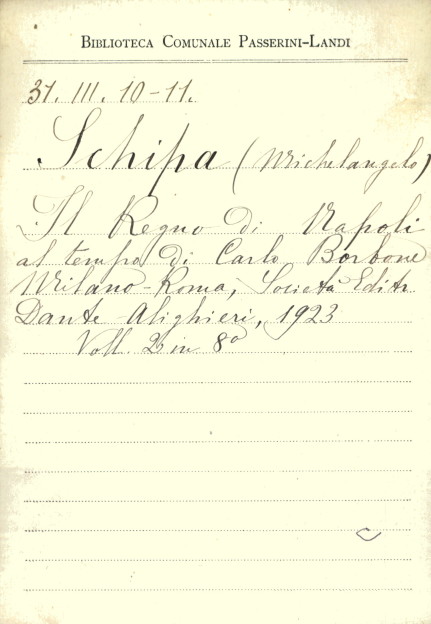 BIBLIOTECA COMUNALE PASSERINI-LANDI
31. III. 10-11.
Schipa (Michelangelo)
Il Regno di Napoli
al tempo di Carlo Borbone
Milano-Roma, Società Editr
Dante Alighieri, 1923
Voll. 2 in 8º